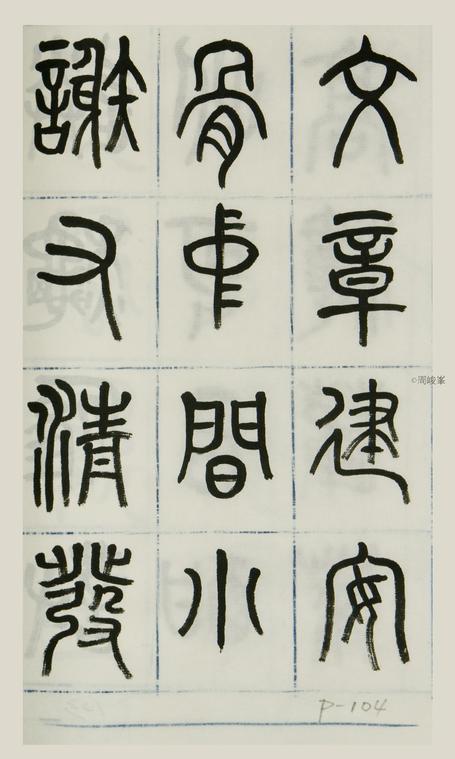 文章建安
骨中間小
謝又清發
©周峻峯
P-104